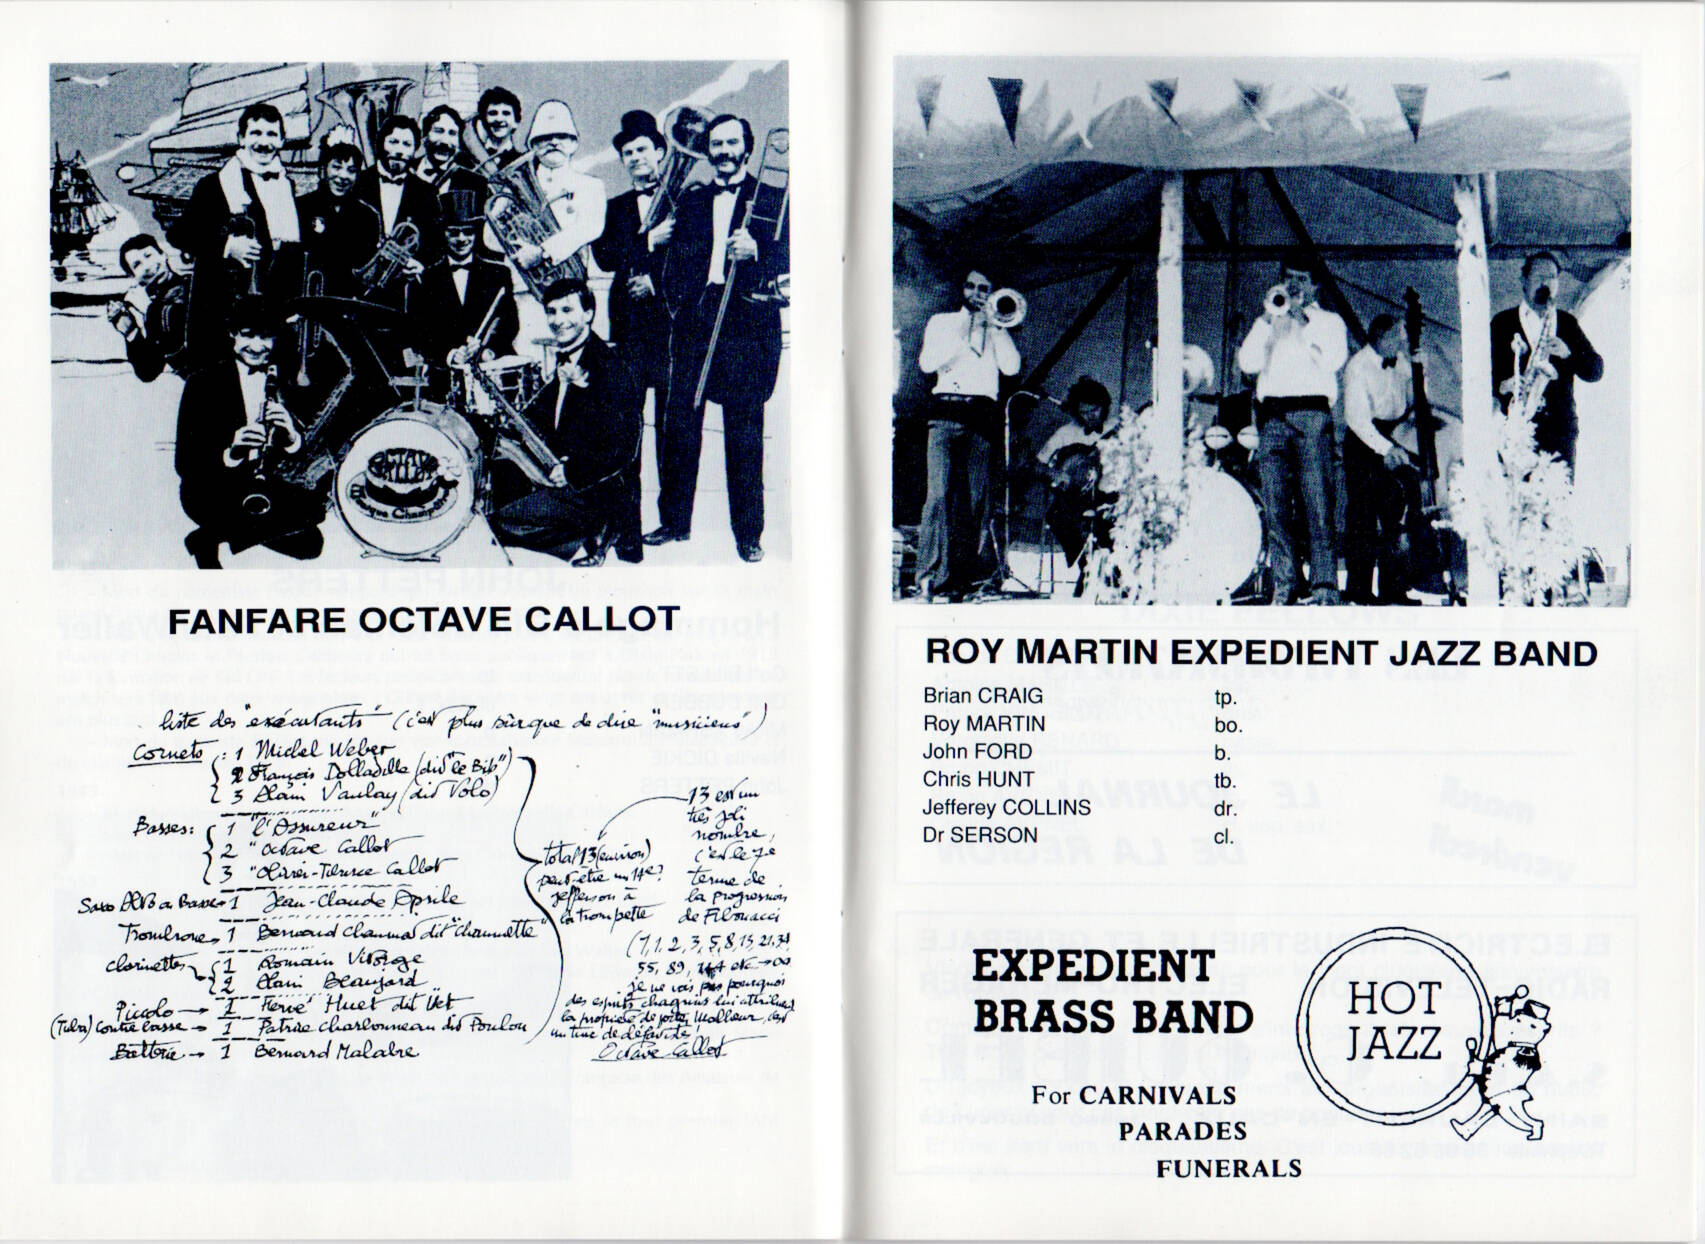 OCTAVE CALLOT
Musique Champêtre
FANFARE OCTAVE CALLOT
liste des "exécutants" (c'est plus sûr que de dire "musiciens")
Cornets : 1 Michel Weber
2 François Dolladille (dit "le Bib")
3 Alain Vaulay (dit Volo)
Basses : 1 "l'Assureur"
2 "Octave Callot
3 "Olivier-Térence Callot
Saxo Alto ou Basse → 1 Jean-Claude Aprile
Trombone → 1 Bernard Chaumat dit "Choumette"
clarinettes → 1 Romain
2 Alain Beaujard
Picolo → 1 Hervé Huet dit Vet
(Tuba) contre basse → 1 Patrice Charbonneau dit Poulou
Batterie → 1 Bernard Malabre
total 13 (environ)
peut-être un 14e?
Jefferson à
la trompette
13 est un
très joli
nombre,
c'est le 7e
terme de
la progression
de Fibonacci
(1, 1, 2, 3, 5, 8, 13, 21, 34
55, 89, 144 etc → ∞
je ne vois pas pourquoi
des esprits chagrins lui attribuent
la propriété de porter malheur, c'est
un truc de défaitiste!
Octave Callot
ROY MARTIN EXPEDIENT JAZZ BAND
Brian CRAIG tp.
Roy MARTIN bo.
John FORD b.
Chris HUNT tb.
Jefferey COLLINS dr.
Dr SERSON cl.
EXPEDIENT
BRASS BAND
For CARNIVALS
PARADES
FUNERALS
HOT
JAZZ